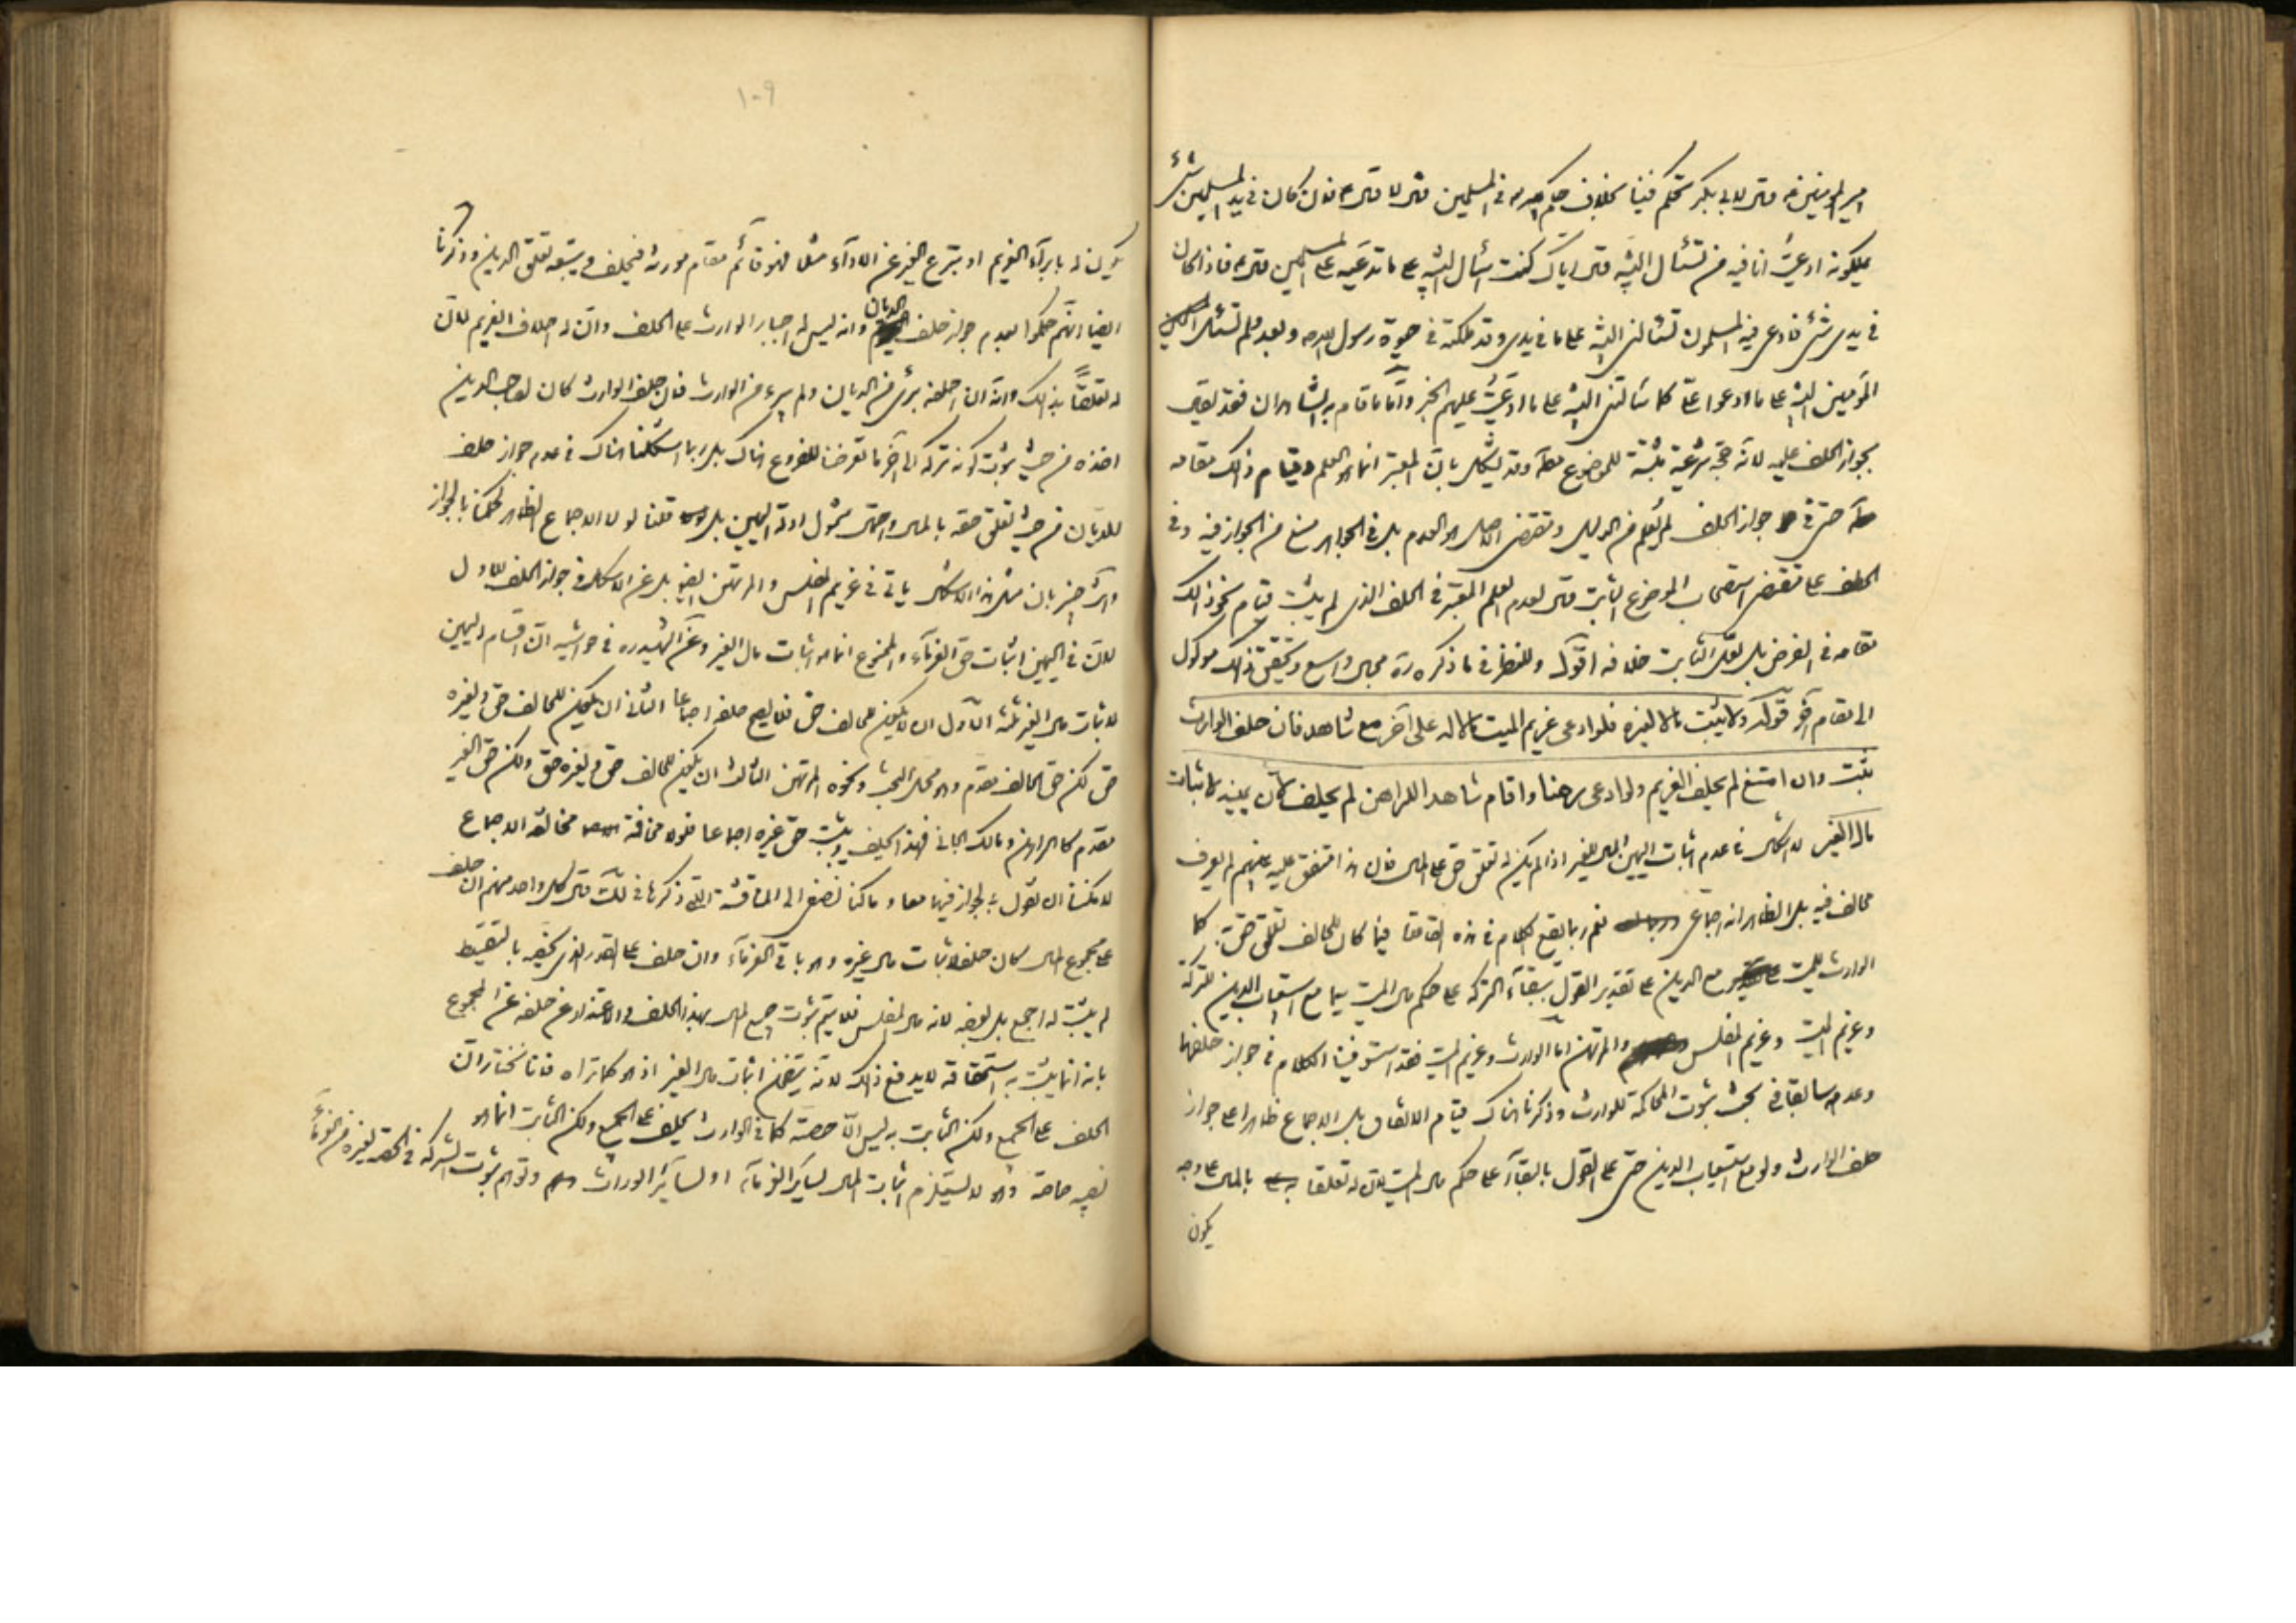 امير المؤمنين ع قال لابي بكر تحكم فينا بخلاف حكم الله في المسلمين قال لا قال ع فان كان في يد المسلمين شئ
يملكونه ادعيت انا فيه من تسئل البينة قال اياك كنت اسئل البينة على ما تدعيه على المسلمين قال ع فاذا كان
في يدي شئ فادعى فيه المسلمون تسئلني البينة على ما في يدي وقد ملكته في حيوة رسول الله ص وبعده ولم تسئل
المؤمنين البينة على ما ادعوا علي كما سألتني البينة على ما ادعيت عليهم الخبر واما ما قام به الشاهدان فقد يقال
بجواز الحلف عليه لانه حجة شرعية مثبتة للموضوع وقد يشكل بان المعتبر انما هو العلم وقيام ذلك مقامه
حتى في جواز الحلف لم يعلم من الدليل ومقتضى الاصل هو العدم بل في الجواهر منع من الجواز فيه وفي
الحلف على مقتضى استصحاب الموضوع الثابت قال لعدم العلم المعتبر في الحلف الذي لم يثبت قيام نحو ذلك
مقامه في الفرض بل لعل الثابت خلافه اقول وللنظر في ما ذكره ره مجال واسع وتحقيق ذلك موكول
الى مقام آخر قوله ولا يثبت مالا لغيره فلو ادعى غريم الميت مالا له على آخر مع شاهد فان حلف الوارث
يثبت وان امتنع لم يحلف الغريم ولو ادعى رهنا واقام شاهدا للراهن لم يحلف لان يمينه لاثبات
مال الغير لا اشكال في عدم اثبات اليمين المال للغير اذا لم يكن له تعلق حق على المال فان هذا متفق عليه بينهم لم يعرف
مخالف فيه بل الظاهر انه اجماعي نعم ربما يقع الكلام في هذه القاعدة فيما كان للحالف تعلق حق به كما
الوارث للميت مع الدين على تقدير القول ببقاء التركة على حكم مال الميت سيما مع استيعاب الدين للتركة
وغريم الميت وغريم المفلس والمرتهن اما الوارث وغريم الميت فقد استوفينا الكلام في جواز حلفهما
وعدمه سابقا في بحث ثبوت المحاكمة للوارث وذكرنا هناك قيام الاتفاق بل الاجماع ظاهرا على جواز
حلف الوارث ولو مع استيعاب الدين حتى على القول بالبقاء على حكم مال الميت لان له تعلقا بالمال على وجه
يكون
١٠٩
يكون له بابراء الغريم او بتبرع الغير عن الاداء مثلا فهو قائم مقام مورثه فيحلف ويتبعه تعلق الدين وذكرنا
ايضا انهم حكموا بعدم جواز حلف الديان وانه ليس له اجبار الوارث على الحلف وان له احلاف الغريم لان
له تعلقا بذلك وانه ان احلفه برئ من الديان ولم يبرء من الوارث فان حلف الوارث كان لصاحب الدين
اخذه من حيث ثبوت كونه تركة الى آخر ما تعرضنا للفروع هناك بل ربما استشكلنا هناك في عدم جواز حلف
للديان من حيث تعلق حقه بالمال واحتمال شمول ادلة اليمين بل قلنا لولا الاجماع الظاهر لحكمنا بالجواز
وانت خبير بان مثل هذا الاشكال يأتي في غريم المفلس والمرتهن ايضا بل عن الاشكال في جواز الحلف للاول
لان في اليمين اثبات حق الغرماء والممنوع انما هو اثبات مال الغير وعن الشهيد ره في حواشيه ان اقسام اليمين
لاثبات مال الغير ثلثة الاول ان لا يكون للحالف حق فلا يصح حلفه اجماعا الثاني ان يكون للحالف حق ولغيره
حق لكن حق الحالف مقدم وهو محل البحث ونحوه المرتهن الثالث ان يكون للحالف حق ولغيره حق ولكن حق الغير
مقدم كالراهن ومالك الجاني فهذا يحلف ويثبت حق غيره اجماعا فلولا مخافة مخالفة الاجماع
لامكننا ان نقول بالجواز فيهما معا وما كنا نصغى الى المناقشة التي ذكرها في لك قال لكل واحد منهم ان حلف
على مجموع المال كان حلفا لاثبات مال غيره وهو باقي الغرماء وان حلف على القدر الذي يخصه بالتقسيط
لم يثبت له اجمع بل بعضه لانه مال المفلس فلا يتم ثبوت جميع المال بهذا الحلف والاعتذار عن حلفه عن المجموع
بانه انما يثبت به استحقاقه لا يدفع ذلك لانه يتضمن اثبات مال الغير اذ هو كما تراه فانا نختار ان
الحلف على الجميع ولكن الثابت به ليس الا حصته كما في الوارث يحلف على الجميع ولكن الثابت انما هو
نصيبه خاصة وهو لا يستلزم اثبات المال لسائر الغرماء او لسائر الوراث وتوهم ثبوت الشركة في الحصة لغيره من الغرماء